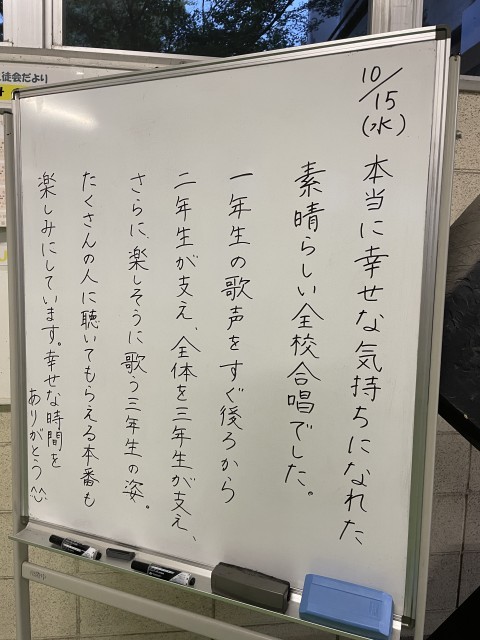 10/15(水)
本当に幸せな気持ちになれた
素晴らしい全校合唱でした。
一年生の歌声をすぐ後ろから
二年生が支え、全体を三年生が支え、
さらに、楽しそうに歌う三年生の姿。
たくさんの人に聴いてもらえる本番も
楽しみにしています。幸せな時間を
ありがとう^^
徒会だより